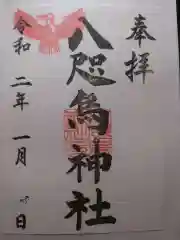 奉拝
八咫烏神社
令和二年一月日